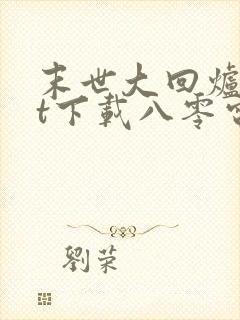 末世大回爐
t下載八零
劉荣